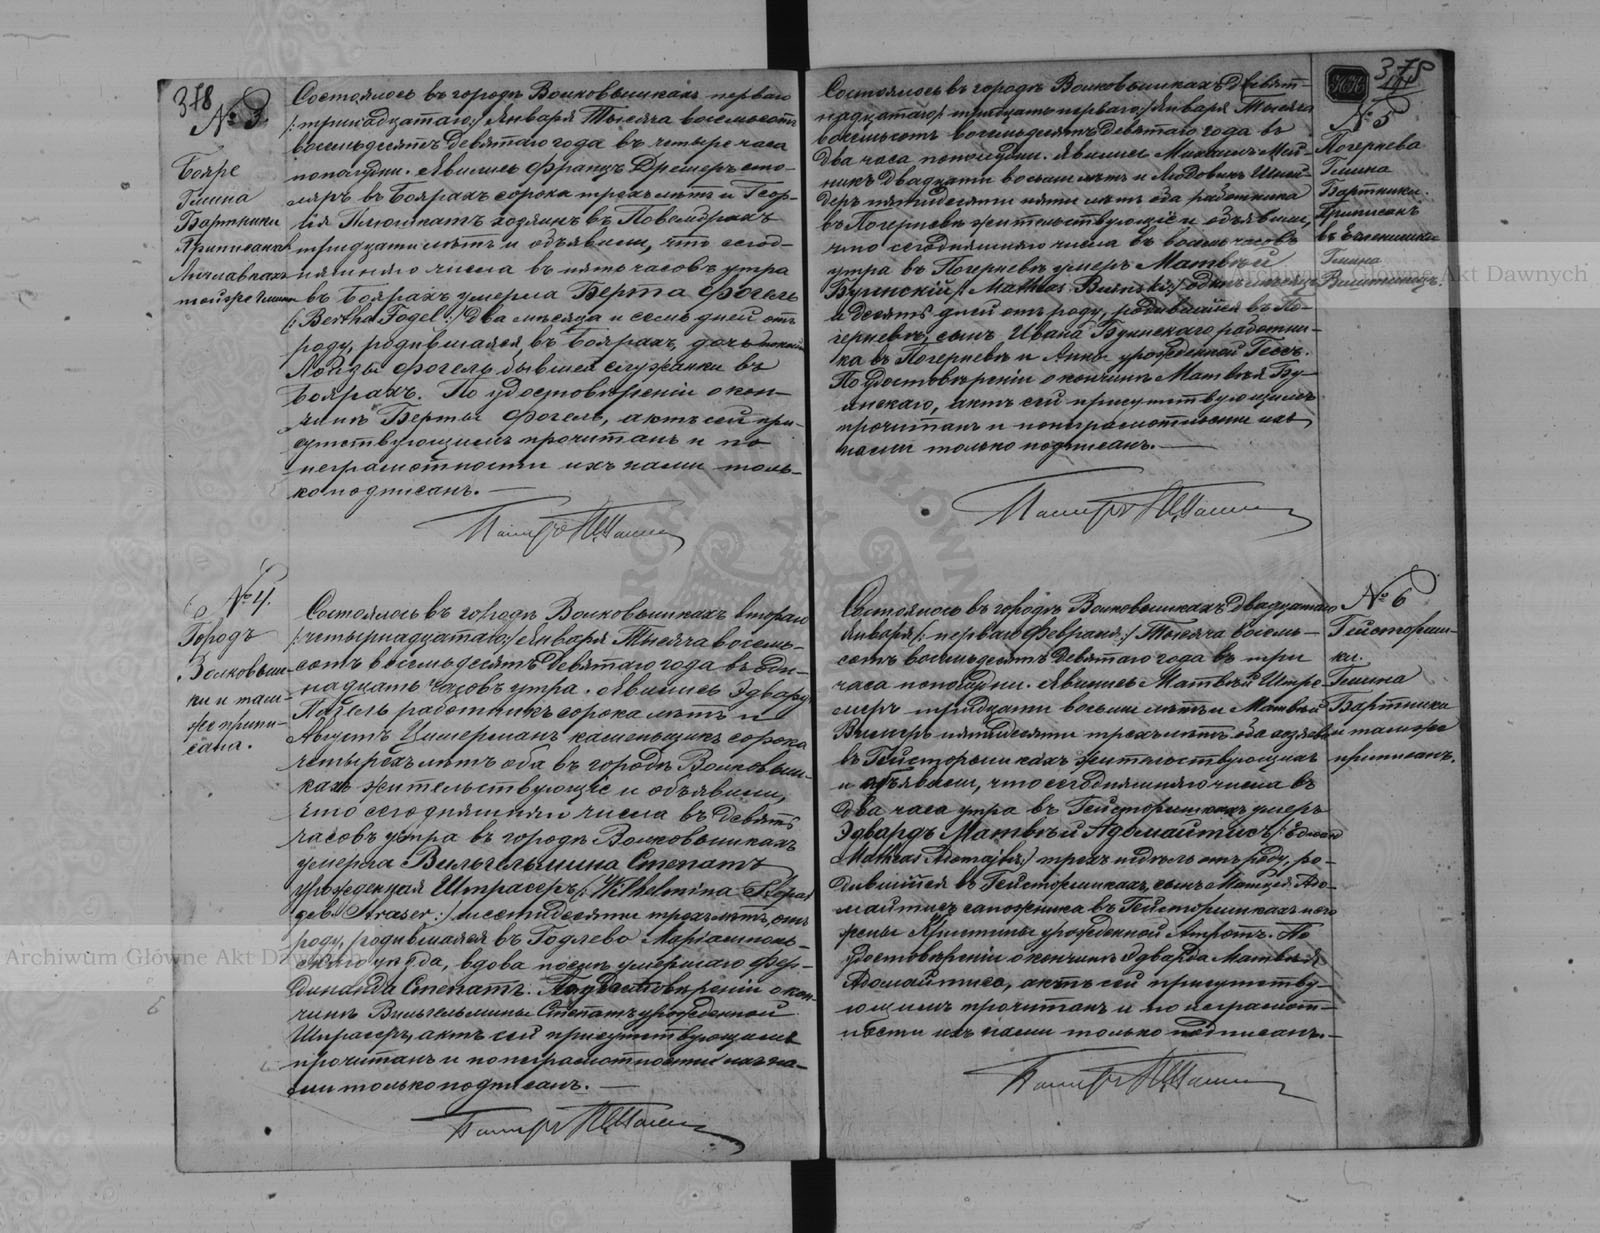 378
№ 3
Бояре
Гмина
Бартники
Приписана
гмины
Состоялось въ городѣ Волковышкахъ перваго
/:тринадцатаго:/ Января Тысяча восемьсотъ
восемьдесятъ Девятаго года въ четыре часа
пополудни. Явились Францъ Дремеръ сто-
ляръ въ Боярахъ сорока трехъ лѣтъ и Геор-
гій хозяинъ въ
тридцати лѣтъ и объявили, что сегод-
няшняго числа въ пять часовъ утра
въ Боярахъ умерла Берта Фогель
/:Bertha Fogel:/ Два мѣсяца и семь дней отъ
роду, родившаяся въ Боярахъ, дочь
Луизы Фогель бывшей служанки въ
Боярахъ. По удостовѣреніи о кон-
чинѣ Берты Фогель, актъ сей при-
сутствующимъ прочитанъ и по
неграмотности ихъ нами толь-
ко подписанъ. —
Пасторъ
№ 4.
Городъ
Волковыш-
ки и там-
же припи-
сана.
Состоялось въ городѣ Волковышкахъ втораго
/:четырнадцатаго:/ Января Тысяча восемь-
сотъ восемьдесятъ Девятаго года въ Оди-
надцать часовъ утра. Явились Эдвардъ
работникъ сорока лѣтъ и
Августъ Цимерманъ каменьщикъ сорока
четырехъ лѣтъ оба въ городѣ Волковыш-
кахъ жительствующіе и объявили,
что сегодняшняго числа въ Девять
часовъ утра въ городѣ Волковышкахъ
умерла Вильгельмина Степатъ
урожденная Штрасеръ /:Wilhelmina
Straser:/ шестидесяти трехъ лѣтъ, отъ
роду, родившаяся въ Годлево Маріампольс-
скаго уѣзда, вдова послѣ умершаго Фер-
динанда Степатъ. По удостовѣреніи о кон-
чинѣ Вильгельмины Степатъ урожденной
Штрасеръ, актъ сей присутствующимъ
прочитанъ и по неграмотности ихъ на-
ми только подписанъ. —
Пасторъ
378
№ 5
Погернева
Гмина
Бартники.
Приписанъ
въ
Гмина
Состоялось въ городѣ Волковышкахъ Девят-
надцатаго /:тридцать перваго:/ Января Тысяча
восемьсотъ восемьдесятъ Девятаго года въ
Два часа пополудни. Явились Михаилъ Мей-
никъ Двадцати восьми лѣтъ и Людовикъ Шней-
деръ пятидесяти пяти лѣтъ оба работника
въ Погерневѣ жительствующіе и объявили,
что сегодняшняго числа въ восемь часовъ
утра въ Погерневѣ умеръ Матвѣй
Буинскій /:Mathias Buinski:/ одинъ мѣсяцъ
и десять дней отъ роду, родившійся въ По-
герневѣ, сынъ Ивана Буинскаго работни-
ка въ Погерневѣ и Анны урожденной Гессъ.
По удостовѣреніи о кончинѣ Матвѣя Бу-
инскаго, актъ сей присутствующимъ
прочитанъ и по неграмотности ихъ
нами только подписанъ. —
Пасторъ
№ 6
Гейсториш-
ки.
Гмина
Бартники
и тамже
приписанъ.
Состоялось въ городѣ Волковышкахъ Двадцатаго
Января /:перваго Февраля:/ Тысяча восемь-
сотъ восемьдесятъ Девятаго года въ три
часа пополудни. Явились Матвѣй Штре-
меръ тридцати восьми лѣтъ и Матвѣй
пятидесяти трехъ лѣтъ, оба хозяева
въ Гейсторишкахъ жительствующіе
и объявили, что сегодняшняго числа въ
Два часа утра въ Гейсторишкахъ умеръ
Эдвардъ Матвѣй Адомайтисъ /:Edward
Mathias Adomajtis:/ трехъ недѣль отъ роду, ро-
дившійся въ Гейсторишкахъ, сынъ Матвея Адо-
майтисъ сапожника въ Гейсторишкахъ и его
жены Христины урожденной. По
удостовѣреніи о кончинѣ Эдварда Матвѣя
Адомайтиса, актъ сей присутству-
ющимъ прочитанъ и по неграмот-
ности ихъ нами только подписанъ. —
Пасторъ
Archiwum Główne Akt Dawnych
Archiwum Główne Akt Dawnych